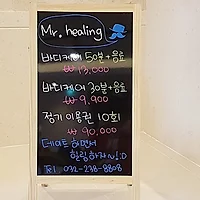 Mr. healing
바디케어 50분+음료
₩ 13,000
바디케어 30분+음료
₩ 9,900
정기 이용권 10회
₩ 90,000
데이트하면서
힐링하자~!:D
Tel. 032-238-8808